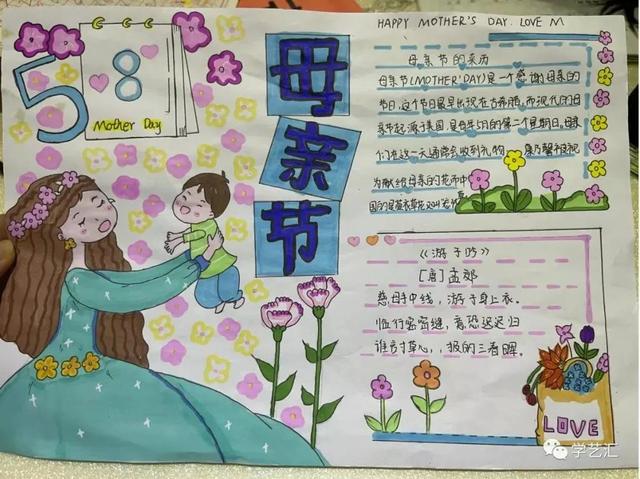 5 8
Mother Day
母亲节
HAPPY MOTHER'S DAY. LOVE M
母亲节的来历
母亲节(MOTHER'DAY)是一个感谢母亲的
节日,这个节日最早出现在古希腊,而现代的母
亲节起源于美国,是每年5月的第二个星期日,母亲
们在这一天通常会收到礼物 康乃馨被视
为献给母亲的花而中
国的是 草花又叫
《游子吟》
[唐]孟郊
慈母手中线,游子身上衣。
临行密密缝,意恐迟迟归
谁言寸草心,报的三春晖。
LOVE
学艺汇